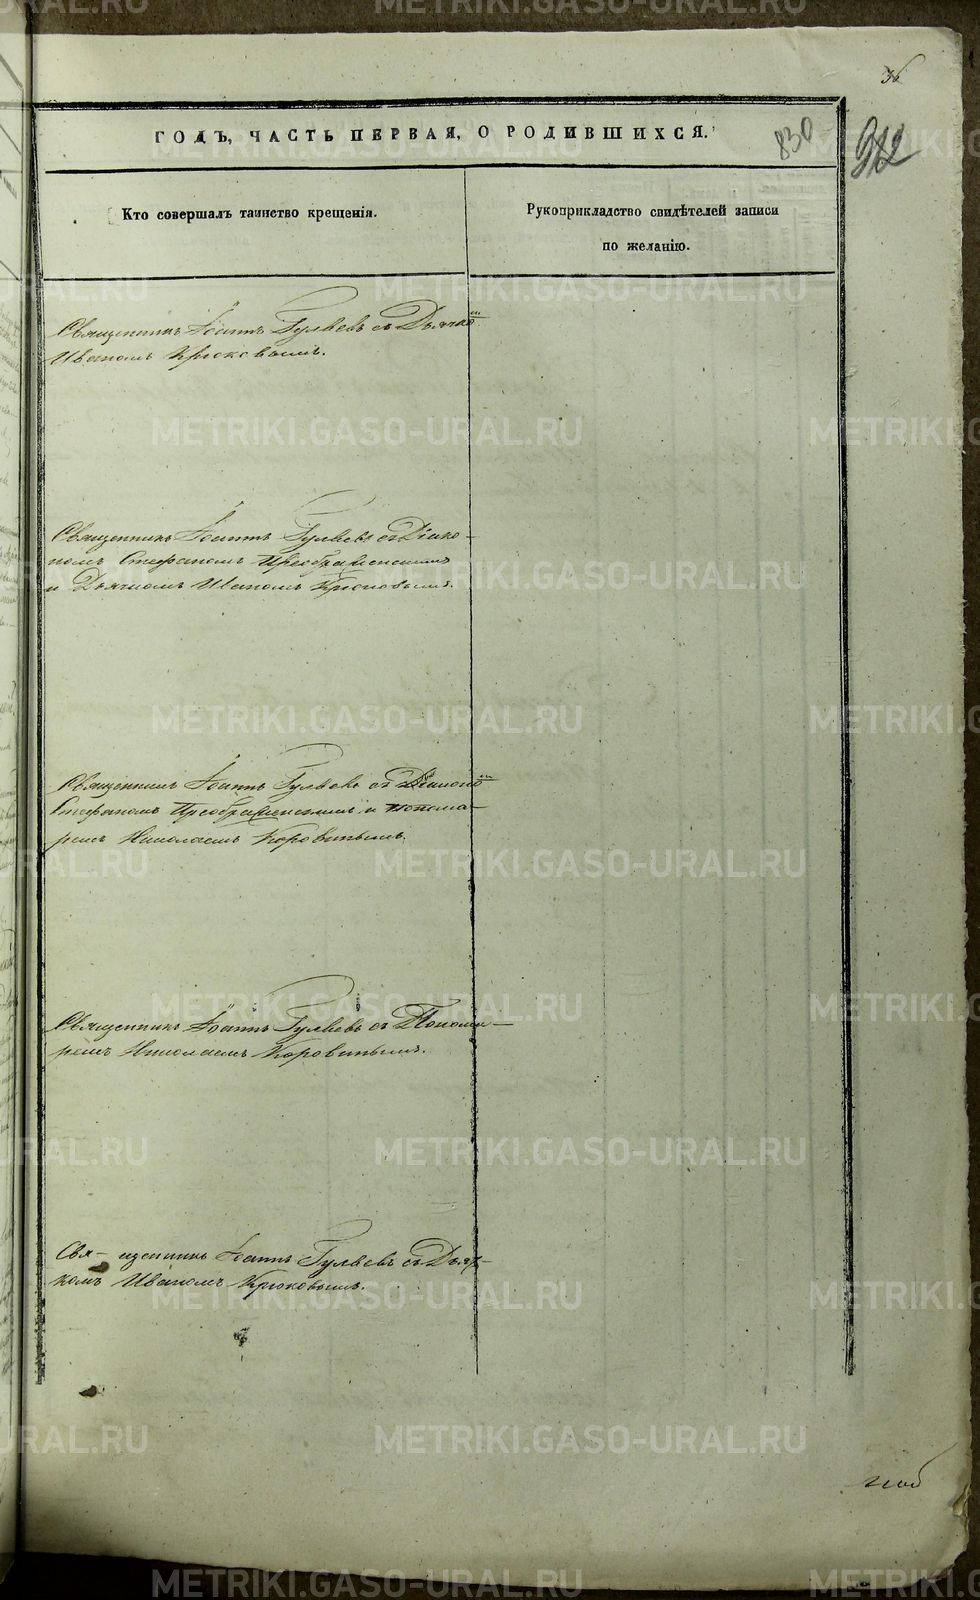 36
ГОДЪ, ЧАСТЬ ПЕРВАЯ, О РОДИВШИХСЯ.
830
Кто совершалъ таинство крещенія.
Рукоприкладство свидѣтелей записи
по желанію.
Священникъ Іоаннъ Гуляевъ съ Дьячко́мъ
Иваномъ Крюковымъ.
Священникъ Іоаннъ Гуляевъ съ Діако-
номъ Стефаномъ Преображенскимъ
и Дьячкомъ Иваномъ Крюковымъ.
Священникъ Іоаннъ Гуляевъ съ Діакономъ
Стефаномъ Преображенскимъ и понома-
ремъ Николаемъ Коровинымъ.
Священникъ Іоаннъ Гуляевъ съ Понома-
ремъ Николаемъ Коровинымъ.
Свя- щенникъ Іоаннъ Гуляевъ съ Дьяч-
комъ Иваномъ Крюковымъ.
METRIKI.GASO-URAL.RU